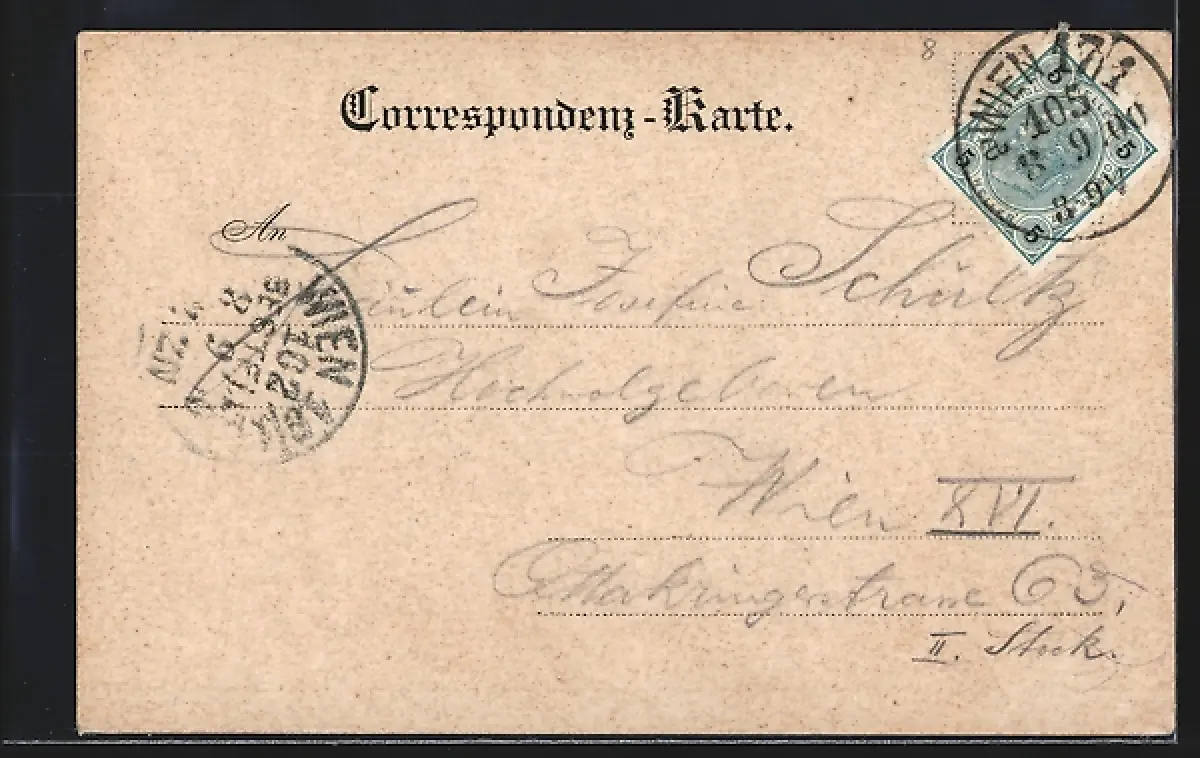 8
Correspondenz-Karte.
WIEN 17/1
105
8 9 00
5 5 5 5
An
Fräulein Josefine Schültz
Hochwolgeboren
Wien XVI.
Ottakringerstrasse 65,
II. Stock.
WIEN
102
BESTELLT
8 9